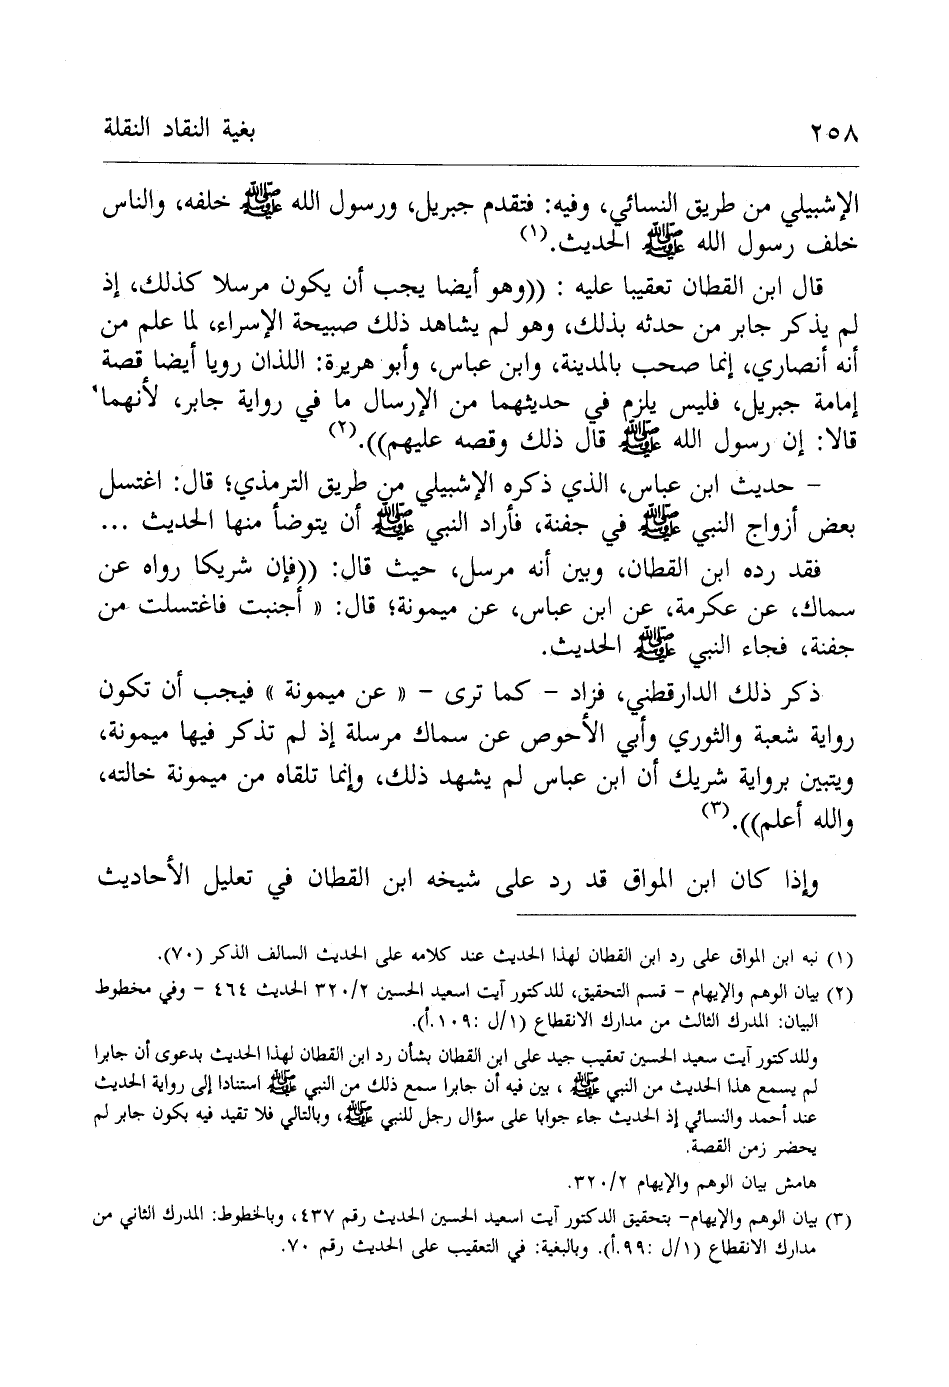 ٢٥٨
بغية النقاد النقلة
الإشبيلي من طريق النسائي، وفيه: فتقدم جبريل، ورسول الله ﷺ خلفه، والناس
خلف رسول الله ﷺ الحديث.(١)
قال ابن القطان تعقيبا عليه : ((وهو أيضا يجب أن يكون مرسلا كذلك، إذ
لم يذكر جابر من حدثه بذلك، وهو لم يشاهد ذلك صبيحة الإسراء، لما علم من
أنه أنصاري، إنما صحب بالمدينة، وابن عباس، وأبو هريرة: اللذان رويا أيضا قصة
إمامة جبريل، فليس يلزم في حديثهما من الإرسال ما في رواية جابر، لأنهما
قالا: إن رسول الله ﷺ قال ذلك وقصه عليهم)).(٢)
- حديث ابن عباس، الذي ذكره الإشبيلي من طريق الترمذي؛ قال: اغتسل
بعض أزواج النبي ﷺ في جفنة، فأراد النبي ﷺ أن يتوضأ منها الحديث ...
فقد رده ابن القطان، وبين أنه مرسل، حيث قال: ((فإن شريكا رواه عن
سماك، عن عكرمة، عن ابن عباس، عن ميمونة؛ قال: « أجنبت فاغتسلت من
جفنة، فجاء النبي ﷺ الحديث.
ذكر ذلك الدارقطني، فزاد - كما ترى - « عن ميمونة » فيجب أن تكون
رواية شعبة والثوري وأبي الأحوص عن سماك مرسلة إذ لم تذكر فيها ميمونة،
ويتبين برواية شريك أن ابن عباس لم يشهد ذلك، وإنما تلقاه من ميمونة خالته،
والله أعلم)).(٣)
وإذا كان ابن المواق قد رد على شيخه ابن القطان في تعليل الأحاديث
(١) نبه ابن المواق على رد ابن القطان لهذا الحديث عند كلامه على الحديث السالف الذكر (٧٠).
(٢) بيان الوهم والإيهام - قسم التحقيق، للدكتور آيت اسعيد الحسين ٣٢٠/٢ الحديث ٤٦٤ - وفي مخطوط
البيان: المدرك الثالث من مدارك الانقطاع (١/ل :١٠٩.أ).
وللدكتور آيت سعيد الحسين تعقيب جيد على ابن القطان بشأن رد ابن القطان لهذا الحديث بدعوى أن جابرا
لم يسمع هذا الحديث من النبي ﷺ ، بين فيه أن جابرا سمع ذلك من النبي ﷺ استنادا إلى رواية الحديث
عند أحمد والنسائي إذ الحديث جاء جوابا على سؤال رجل للنبي ﷺ، وبالتالي فلا تقيد فيه بكون جابر لم
يحضر زمن القصة.
هامش بيان الوهم والإيهام ٣٢٠/٢.
(٣) بيان الوهم والإيهام- بتحقيق الدكتور آيت اسعيد الحسين الحديث رقم ٤٣٧، وبالخطوط: المدرك الثاني من
مدارك الانقطاع (١/ل :٩٩.أ). وبالبغية: في التعقيب على الحديث رقم ٧٠.